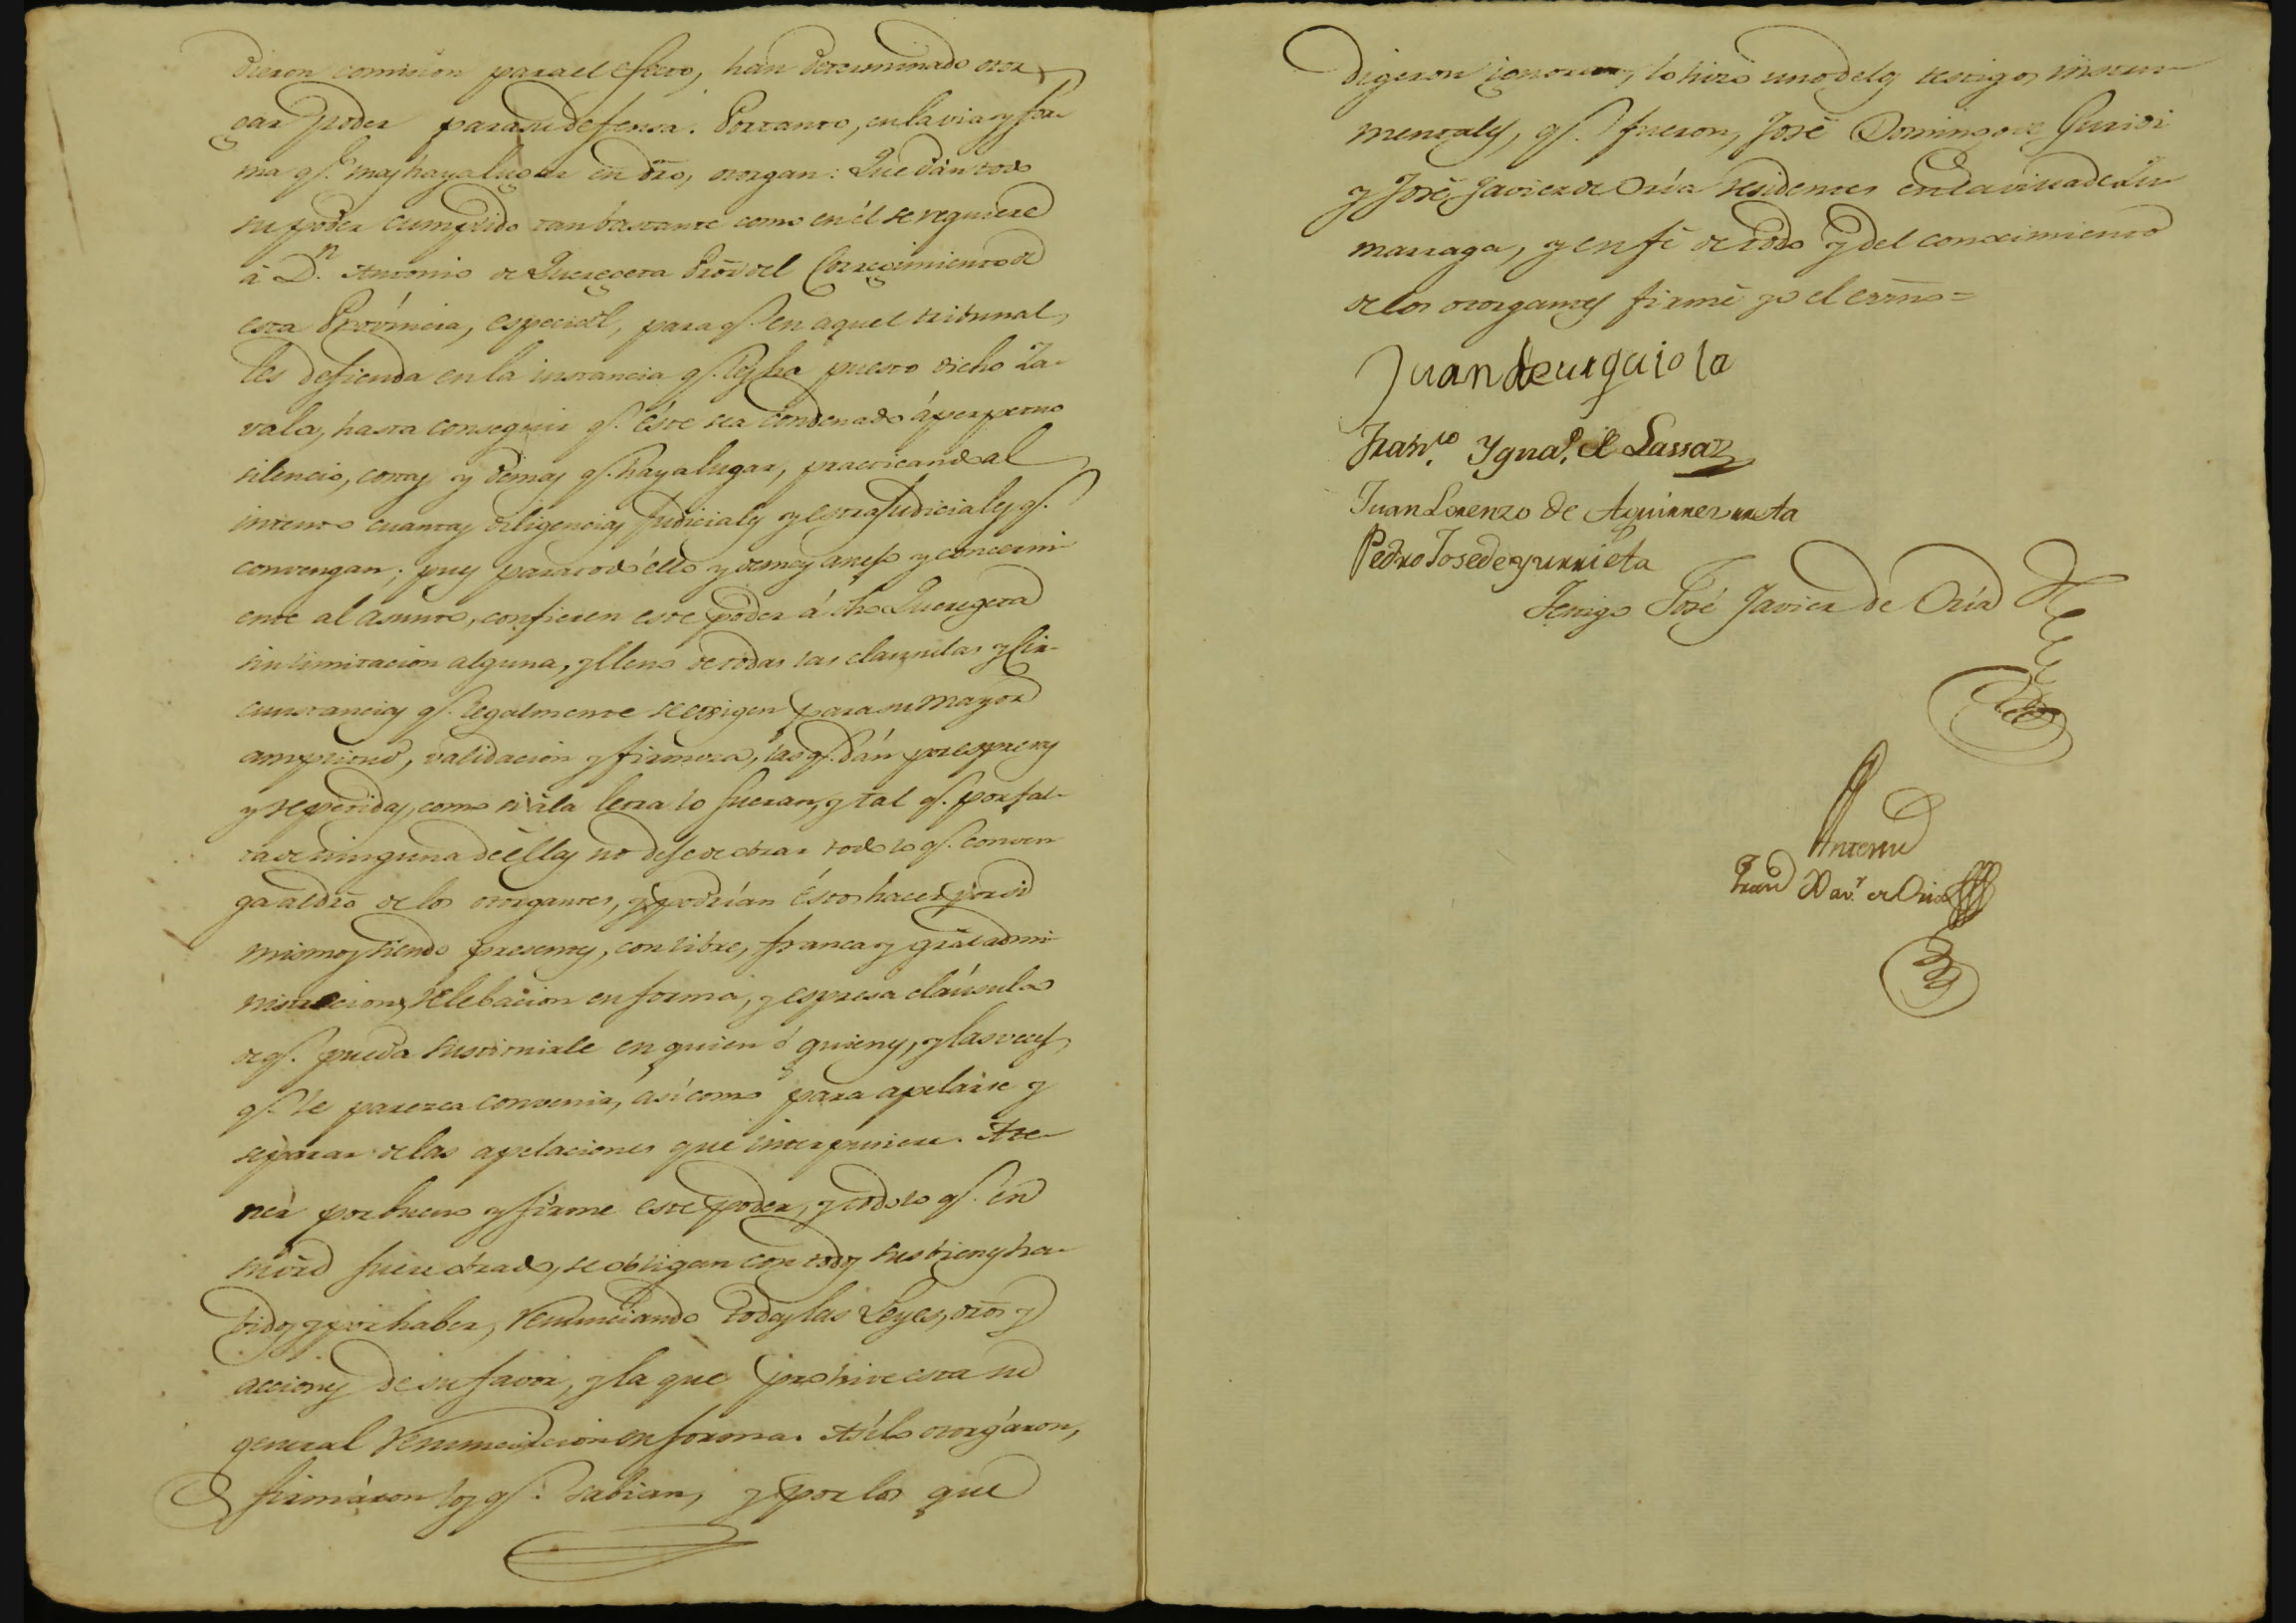 dieron comision para el efecto, han determinado otor-
gar poder para su defensa. Por tanto, en la via y for-
ma q.e mas haya lugar en dro, otorgan: Que dán todo
su poder cumplido tan bastante como en él se requiere
à D.n Antonio de Queregeta Pror del Corregimiento de
esta Provincia, especial, para q.e en aquel tribunal
les defienda en la instancia q.e les ha puesto dicho Za-
vala, hasta conseguir q.e éste sea condenado á perpetuo
silencio, costas y demas q.e haya lugar, practicando al
intento cuantas diligencias judiciales y estrajudiciales q.e
convengan; pues para todo éllo y demas anejo y concerni-
ente al asunto, confieren este poder á dho Queregeta
sin limitacion alguna, y lleno de todas las clausulas y cir-
cunstancias q.e legalmente se exigen para su mayor
amplitud, validacion y firmeza, las q.e dán por espresas
y repetidas, como si à la letra lo fueran, y tal q.e por fal-
ta de ninguna de éllas no deje de obrar todo lo q.e conven-
ga al dro de los otorgantes, y podrían éstos hacer por si
mismos siendo presentes, con libre, franca y gral admi-
nistracion, relebacion en forma, y espresa cláusula
de q.e pueda sustituirle en quien ó quienes, y las veces
q.e le parezca convenir, así como para apelarse y
separar de las apelaciones que interpusiere. A te-
nér por bueno y firme este poder, y todo lo q.e en
su vird fuere obrado, se obligan con todos sus bienes ha-
bidos y por haber, renunciando todas las Leyes, dros y
acciones de su favor, y la que prohive esta su
general renunciacion en forma. Así lo otorgáron,
firmáron los q.e sabian, y por los que
digeron ignorar, lo hizo uno de los testigos instru-
mentales, q.e fueron, José Domingo de Guridi
y José Javier de Oria residentes en la villa de Zu-
marraga, y en fé de todo y del conocimiento
de los otorgantes firmé yo el essno=
Juan de urquiola
Fran.co Ygna.o de Lassa
Juan Lorenzo de Aguirrezurreta
Pedro Jose de yurrieta
Testigo José Javier de Oria
Antemi
Juan Xav.r de Oria